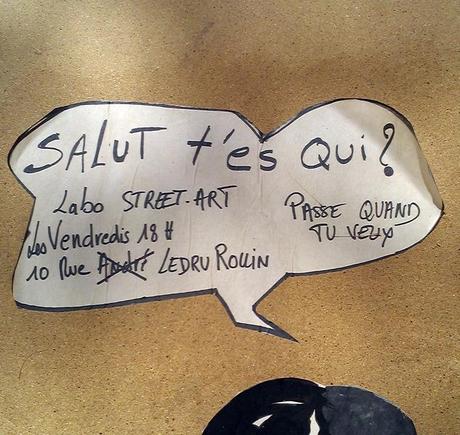 SALUT t'es QUI?
Labo STREET-ART
Les Vendredis 18H
10 Rue André LEDRU ROLLIN
PASSE QUAND
TU VEUX